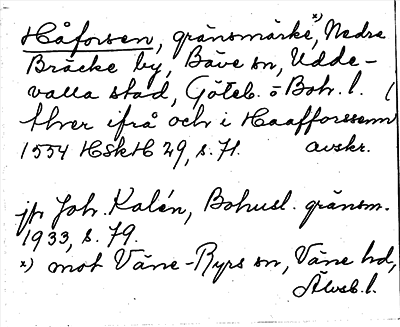 Håforsen, gränsmärke ˣ⁾, Nedre
Bräcke by, Bäve sn, Udde-
valla stad, Göteb. o Boh. l. (
thver ifrå och i Haafforssenn
1554 HSkH 29, s. 71. avskr.
jfr Joh. Kalén, Bohusl. gränsm.
1933, s. 79.
x) mot Väne-Ryrs sn, Väne hd,
Älvsb. l.